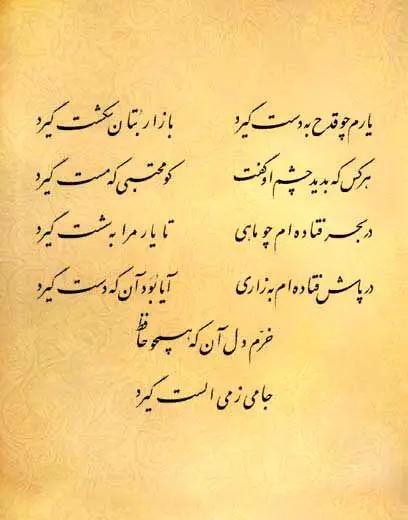 یارم چو قدح به دست گیرد بازار بتان شکست گیرد
هر کس که بدید چشم او گفت کو محتسبی که مست گیرد
در بحر فتاده ام چو ماهی تا یار مرا به شست گیرد
در پاش فتاده ام به زاری آیا بود آن که دست گیرد
خرم دل آن که همچو حافظ
جامی ز می الست گیرد